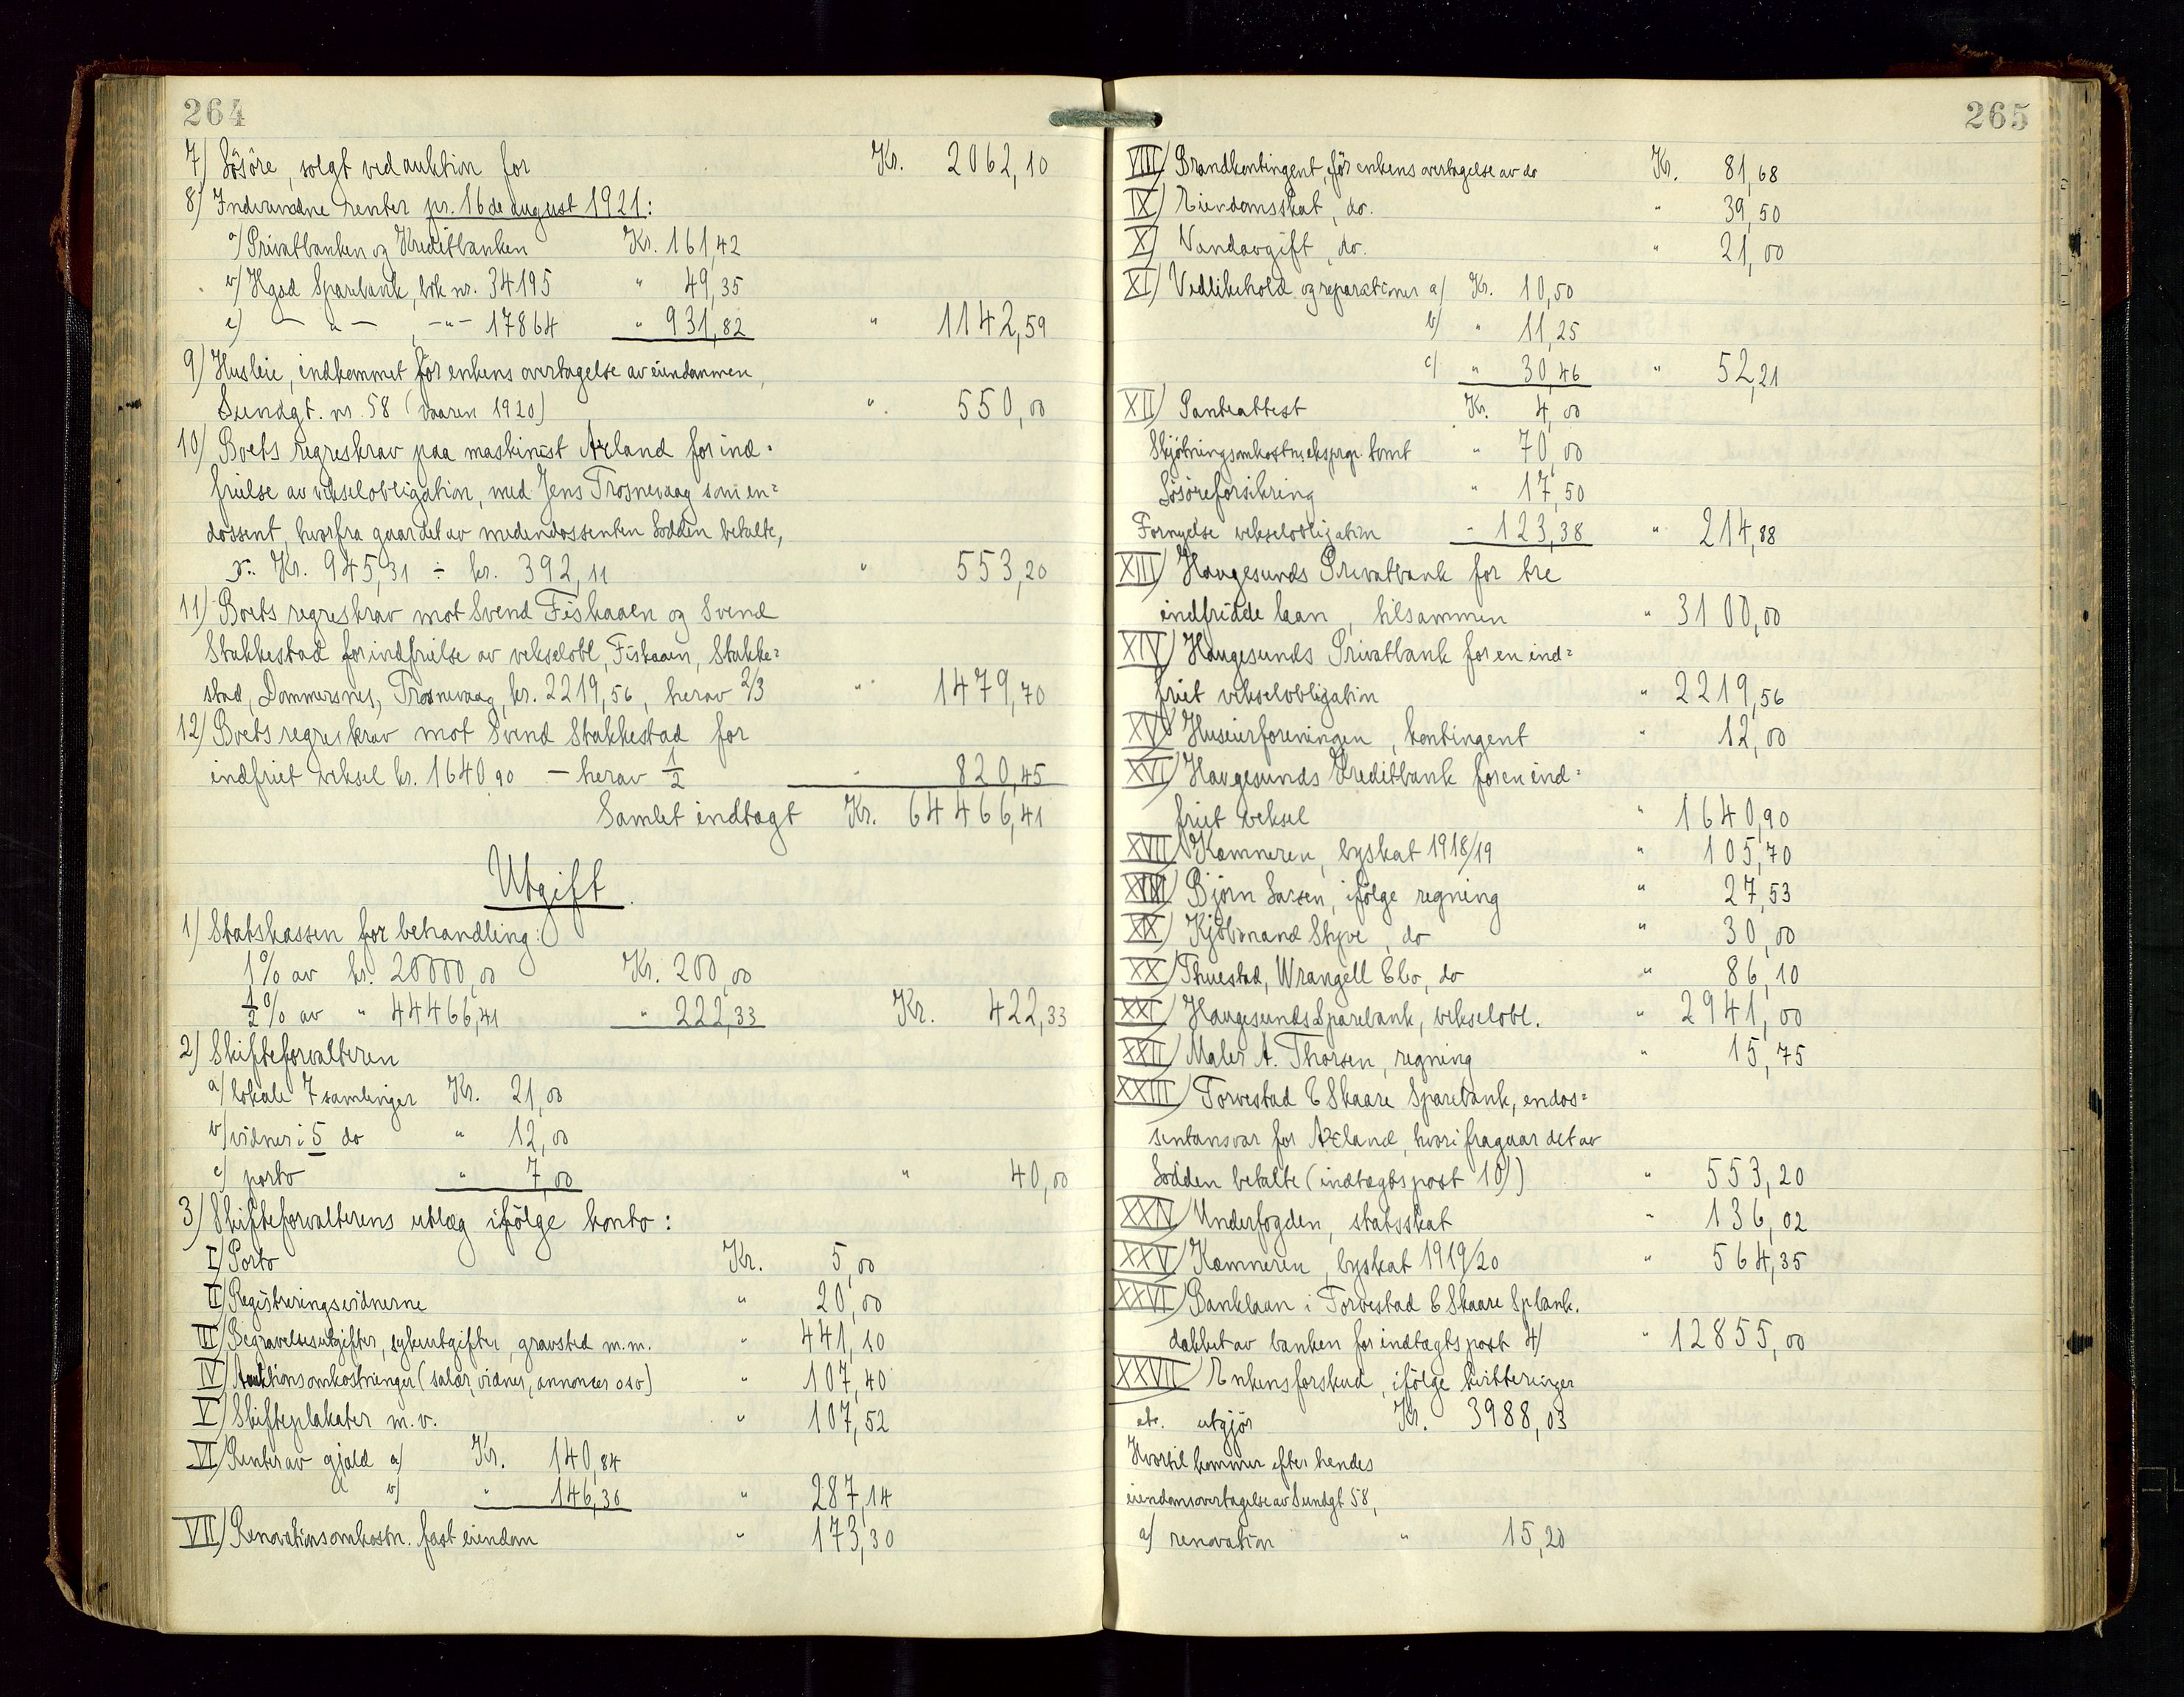 264
7) Lösöre, solgt ved auktion for Kr. 2062,10
8) Indvundne renter pr. 16de august 1921:
a) Privatbanken og Kreditbanken Kr. 161,42
b) Hgsd Sparebank, bok nr. 34195 " 49,35
c) — " — , —"— 17864 " 931,82 " 1142,59
9) Husleie, indkommet för enkens overtagelse av eiendommen,
Sundgt. nr. 58 (vaaren 1920) " 550,00
10) Boets regreskrav paa maskinist Axland for ind-
frielse av vekselobligation, med Jens Trosnevaag som en=
dossent, hvorfra gaar det av medendossenten Lodden betalte,
Kr. 945,31 ÷ kr. 392,11 " 553,20
11) Boets regreskrav mot Svend Fiskaaen og Svend
Stakkestad for indfrielse av vekselobl, Fiskaaen, Stakke=
stad, Dommersnes, Trosnevaag, kr. 2219,56, herav 2/3 " 1479,70
12) Boets regreskrav mot Svend Stakkestad for
indfriet veksel kr. 1640 90 — herav 1/2 " 820,45
Samlet indtægt Kr. 64466,41
Utgift.
1) Statskassen for behandling:
1% av kr. 20000,00 Kr. 200,00
1/2% av " 44466,41 " 222,33 Kr. 422,33
2) Skifteforvalteren
a) lokale 7 samlinger Kr. 21,00
b) vidner i 5 do " 12,00
c) porto " 7,00 " 40,00
3) Skifteforvalterens utlæg ifölge konto:
I) Porto Kr. 5,00
II) Registreringsvidnerne " 20,00
III) Begravelsesutgifter, sykeutgifter, gravsted m.m. " 441,10
IV) Auktionsomkostninger (salær, vidner, annonser osv) " 107,40
V) Skifteplakater m.v. " 107,52
VI) Renter av gjæld a) Kr. 140,84
b) " 146,30 " 287,14
VII) Renovationsomkostn. fast eiendom " 173,30
265
VIII) Brandkontingent, för enkens overtagelse av do Kr. 81,68
IX) Eiendomsskat, do. " 39,50
X) Vandavgift, do. " 21,00
XI) Vedlikehold og reparationer a) Kr. 10,50
b) " 11,25
c) " 30,46 " 52,21
XII) Panteattest Kr. 4,00
Skjötningsomkostn. ekspropr. tomt " 70,00
Lösöreforsikring " 17,50
Fornyelse vekselobligation " 123,38 " 214,88
XIII) Haugesunds Privatbank for tre
indfridde laan, tilsammen " 3100,00
XIV) Haugesunds Privatbank for en ind=
friet vekselobligation " 2219,56
XV) Huseierforeningen, kontingent " 12,00
XVI) Haugesunds Kreditbank for en ind=
friet veksel " 1640,90
XVII) Kæmneren, byskat 1918/19 " 105,70
XVIII) Björn Larsen, ifölge regning " 27,53
XIX) Kjöbmand Skyve, do " 30,00
XX) Thuestad, Wrangell & Co, do " 86,10
XXI) Haugesunds Sparebank, vekselobl. " 2941,00
XXII) Maler A. Thorsen, regning " 15,75
XXIII) Torvestad & Skaare Sparebank, endos=
sentansvar for Axland, hvori fragaar det av
Lodden betalte (indtægtspost 10)) " 553,20
XXIV) Underfogden, statsskat " 136,02
XXV) Kæmneren, byskat 1919/20 " 564,35
XXVI) Banklaan i Torvestad & Skaare Spbank.
dækket av banken for indtægtspost 4) " 12855,00
XXVII) Enkens forskud, ifölge kvitteringer
etc. utgjör Kr. 3988,03
Hvortil kommer efter hendes
eiendomsovertagelse av Sundgt 58,
a) renovation " 15,20